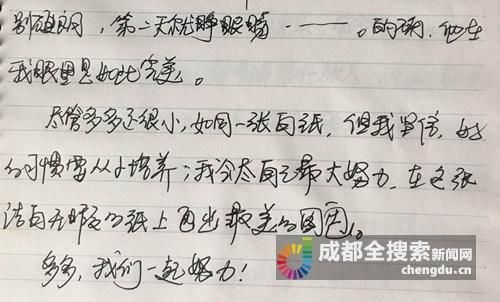 第二天就睁眼睛——。的确,他在
我眼里是如此完美。
尽管多多还很小,如同一张白纸,但我坚信,好
的习惯要从小培养;我会尽自己最大努力,在这张
洁白无瑕的纸上画出最美的图画。
多多,我们一起努力!
成都全搜索新闻网
chengdu.cn